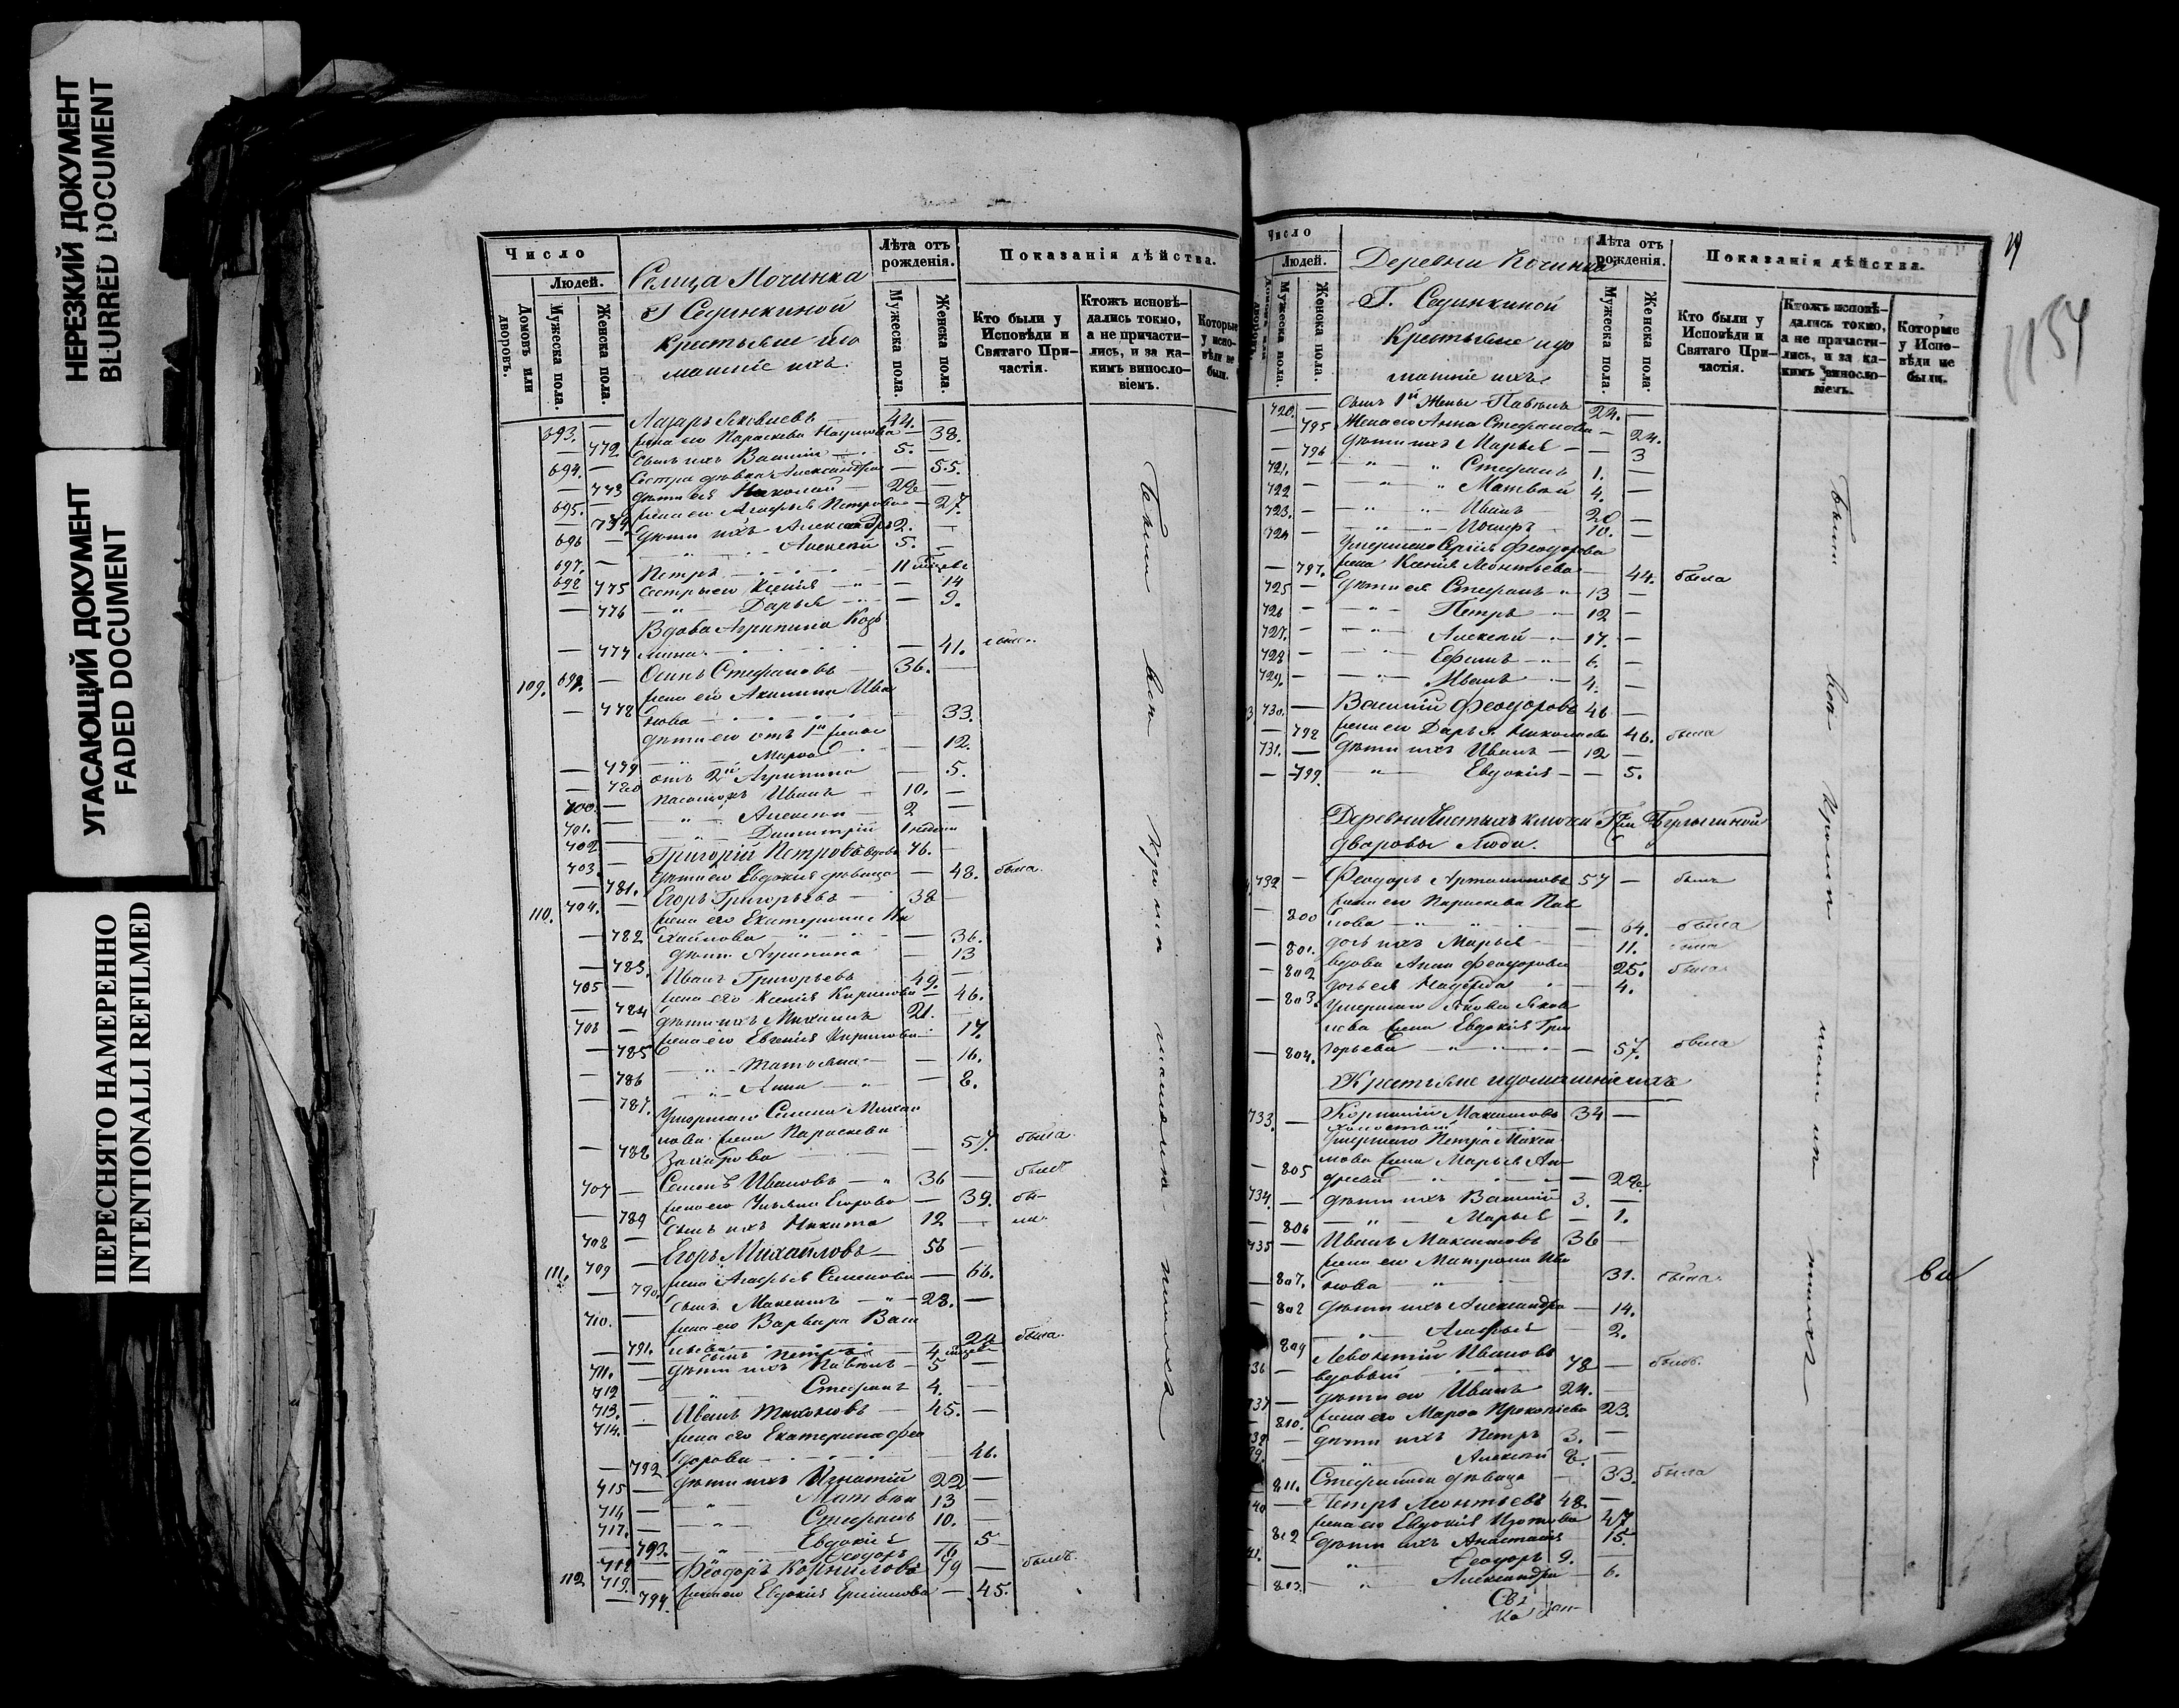 НЕРЕЗКИЙ ДОКУМЕНТ
BLURRED DOCUMENT
УГАСАЮЩИЙ ДОКУМЕНТ
FADED DOCUMENT
ПЕРЕСНЯТО НАМЕРЕННО
INTENTIONALLI REFILMED
Число
Людей.
Домовъ или дворовъ.
Мужеска пола.
Женска пола.
Г Сединкиной
Крестьяне и до
машніе ихъ.
Лѣта отъ рожденія.
Мужеска пола.
Женска пола.
Показанія дѣйства.
Кто были у Исповѣди и Святаго Причастія.
Ктожъ исповѣдались токмо, а не причастились, и за какимъ винословіемъ.
Которые у исповѣди не были.
693. — Лазарь Яковлевъ — 44. —
— 772 жена его Параскева — 38.
694. — Сынъ ихъ Василій 5. —
— 773 Сестра дѣвка Александра — 55.
695. — дѣти ея Николай 28 —
— жена его Агафья Петрова — 27.
696 — дѣти ихъ Александръ 2. —
697. — Алексѣй 5. —
698 Петръ 11
775 сестры его Ксенія — 14
— 776 Дарья — 9.
Вдова Агрипина Козь
— 777 мина — 41. была
109. 699. — Осипъ Стефановъ — 36. —
жена его Акилина Ива
— 778 нова — 33.
дѣти его отъ 1й жены
— 779 Марѳа — 12.
— 780 отъ 2й Агрипина — 5.
700. — Иванъ 10. —
701. — Алексѣй 2 —
702 Димитрій 1 недели
703. — Григорій Петровъ вдовъ 76. —
— 781. дѣти его Евдокія дѣвица — 48. была.
110. 704. — Егоръ Григорьевъ 38 —
жена его Екатерина Ми
— 782 хайлова — 36.
— 783. дѣти Агрипина — 13
705 — Иванъ Григорьевъ 49. —
— 784 жена его Ксенія Кирилова — 46.
706 — дѣти ихъ Михаилъ 21. —
— 785 жена его Евгенія Кирилова — 17.
— 786 Татьяна — 16.
— 787. Анна — 8.
Умершаго Семена Михаи
лова жена Параскева
— 788 Захарова — 57. была.
707 — Семенъ Ивановъ 36 — былъ
— 789 жена его Ульяна Егорова — 39. бы-
708 — Сынъ ихъ Никита 12 — ли.
111. 709 — Егоръ Михайловъ — 56 —
— 790. жена Агафья Семенова — 66.
710. — сынъ Максимъ 28. —
жена его Варвара Васи
— 791. льева — 22 была.
711. — сынъ Петръ 4.
712 дѣти ихъ Павелъ 5 —
713. — Стефанъ 4. —
714. — Иванъ Тихоновъ — 45. —
жена его Екатерина Фео
— 792 дорова — 46.
715 — дѣти ихъ Игнатій 22 —
716 — Матвѣй 13 —
717. — Стефанъ 10. —
— 793. Евдокія — 5
718 — Феодоръ 16
112 719. — Феодоръ Корниловъ 79 — былъ.
— 794. жена его Евдокія — 45.
Были вси кромѣ
Число
Людей.
Домовъ или дворовъ.
Мужеска пола.
Женска пола.
Деревни Починка
Г. Сединкиной
Крестьяне и до
машніе ихъ.
Лѣта отъ рожденія.
Мужеска пола.
Женска пола.
Показанія дѣйства.
Кто были у Исповѣди и Святаго Причастія.
Ктожъ исповѣдались токмо, а не причастились, и за какимъ винословіемъ.
Которые у Исповѣди не были.
154
720. — Сынъ 1й жены Павелъ 24. —
— 795 Жена его Анна Стефанова — 24.
— 796 дѣти ихъ Марья — 3
721. — Стефанъ 1. —
722 — Матвѣй 4. —
723. — Иванъ 20 —
724 — Іосифъ 10. —
Умершаго Сергія Феодорова
— 797. жена Ксенія Леонтьева — 44. была
725 — дѣти ея Стефанъ 13 —
726 — Петръ 12 —
727. — Алексѣй 17. —
728 — Ефимъ 6. —
729. — Иванъ 4. —
730. — Василій Феодоровъ 46 —
— 798 жена его Дарья Николаева 46. была
731. — дѣти ихъ Иванъ 12 —
— 799. Евдокія — 5.
Деревни Чистыхъ ключи
дворовые люди.
732 — Феодоръ Артамоновъ 57 — былъ
жена его Параскева Пав
— 800 лова — 64. была
— 801. дочь ихъ Марья 11. была
— 802 вдова Анна Феодорова 25. была
— 803. дочь ея Надежда 4.
Умершаго Якова Яков
лева жена Евдокія Гри
— 804. горьева — 57. была
Крестьяне и домашніе ихъ
733. — Корнилій Максимовъ 34 —
холостый
Умершаго Петра Макси
мова жена Марья Ан
— 805 дреева — 28.
734. — дѣти ихъ Василій 3. —
— 806 Марья — 1.
735 — Иванъ Максимовъ 36 —
жена его Матрона Ива
— 807. нова 31. была.
— 808 дѣти ихъ Александра — 14.
809 Агафья 2.
736 — Левонтій Ивановъ
вдовый 78 — былъ.
737 — дѣти его Иванъ 24. —
— 810. жена его Марѳа Прокопіева 23.
738 — дѣти ихъ Петръ 3. —
Алексѣй 8. —
— 811. Стефанида дѣвица 33. была
740 — Петръ Леонтьевъ 48. —
— 812 жена его Евдокія 47
дѣти ихъ Анастасія 15.
Феодоръ 9. —
— 813. Александра 6.
Были вси кромѣ